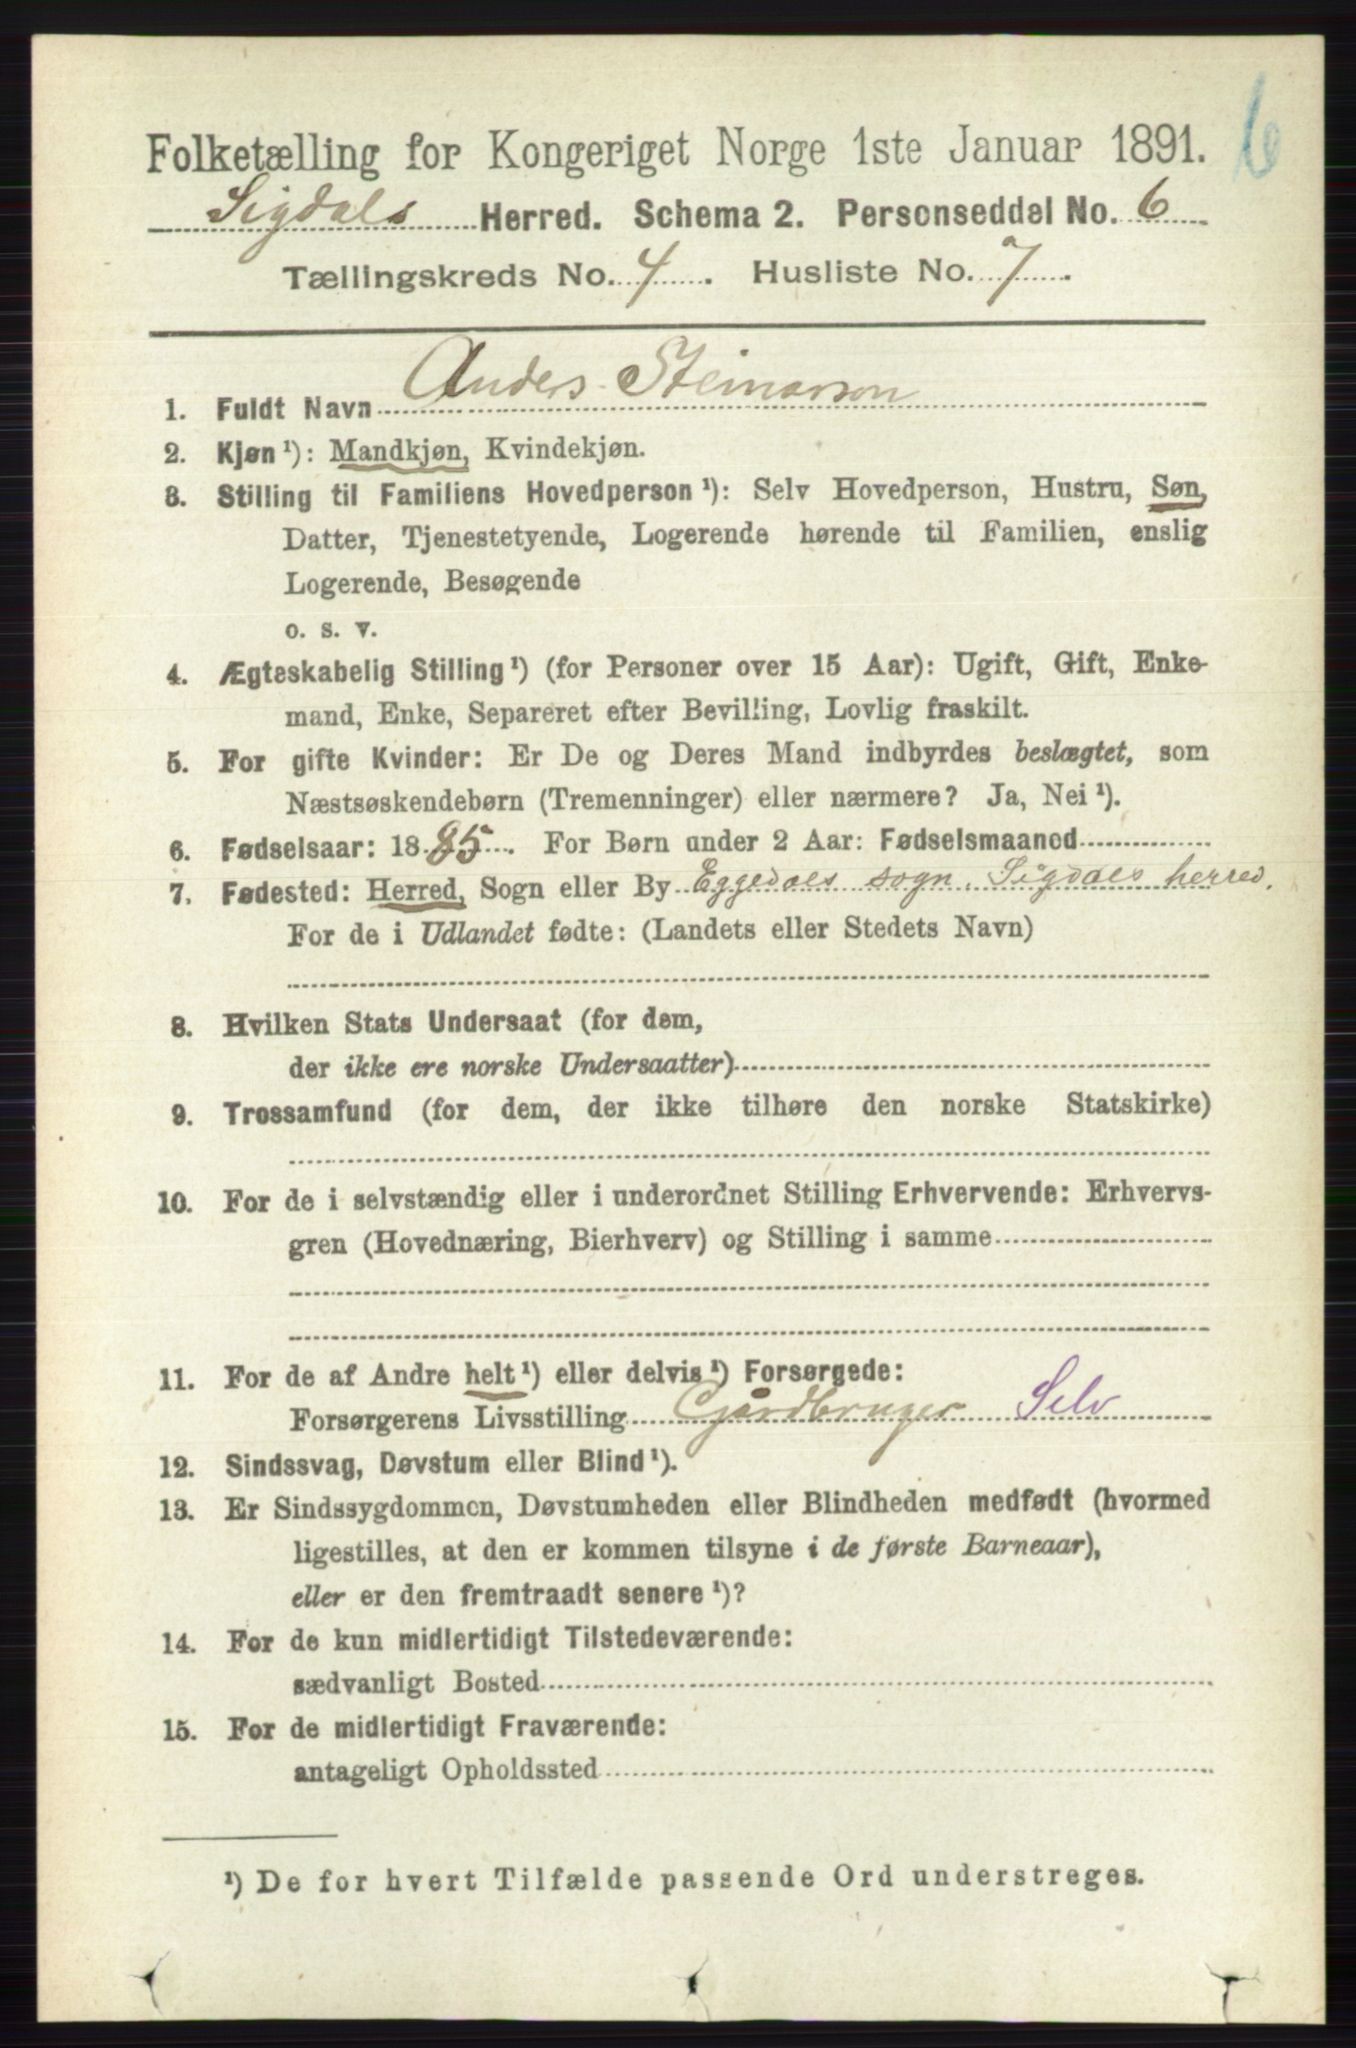 6
Folketælling for Kongeriget Norge 1ste Januar 1891.
Sigdals Herred. Schema 2. Personseddel No. 6
Tællingskreds No. 4. Husliste No. 7.
1. Fuldt Navn Anders Steinarson
2. Kjøn ¹): Mandkjøn, Kvindekjøn.
3. Stilling til Familiens Hovedperson ¹): Selv Hovedperson, Hustru, Søn,
Datter, Tjenestetyende, Logerende hørende til Familien, enslig
Logerende, Besøgende
o. s. v.
4. Ægteskabelig Stilling ¹) (for Personer over 15 Aar): Ugift, Gift, Enke-
mand, Enke, Separeret efter Bevilling, Lovlig fraskilt.
5. For gifte Kvinder: Er De og Deres Mand indbyrdes beslægtet, som
Næstsøskendebørn (Tremenninger) eller nærmere? Ja, Nei ¹).
6. Fødselsaar: 1885. For Børn under 2 Aar: Fødselsmaaned
7. Fødested: Herred, Sogn eller By Eggedals sogn. Sigdals herred.
For de i Udlandet fødte: (Landets eller Stedets Navn)
8. Hvilken Stats Undersaat (for dem,
der ikke ere norske Undersaatter)
9. Trossamfund (for dem, der ikke tilhøre den norske Statskirke)
10. For de i selvstændig eller i underordnet Stilling Erhvervende: Erhvervs-
gren (Hovednæring, Bierhverv) og Stilling i samme
11. For de af Andre helt ¹) eller delvis ¹) Forsørgede:
Forsørgerens Livsstilling Gårdbruger Selv
12. Sindssvag, Døvstum eller Blind ¹).
13. Er Sindssygdommen, Døvstumheden eller Blindheden medfødt (hvormed
ligestilles, at den er kommen tilsyne i de første Barneaar),
eller er den fremtraadt senere ¹)?
14. For de kun midlertidigt Tilstedeværende:
sædvanligt Bosted
15. For de midlertidigt Fraværende:
antageligt Opholdssted
¹) De for hvert Tilfælde passende Ord understreges.